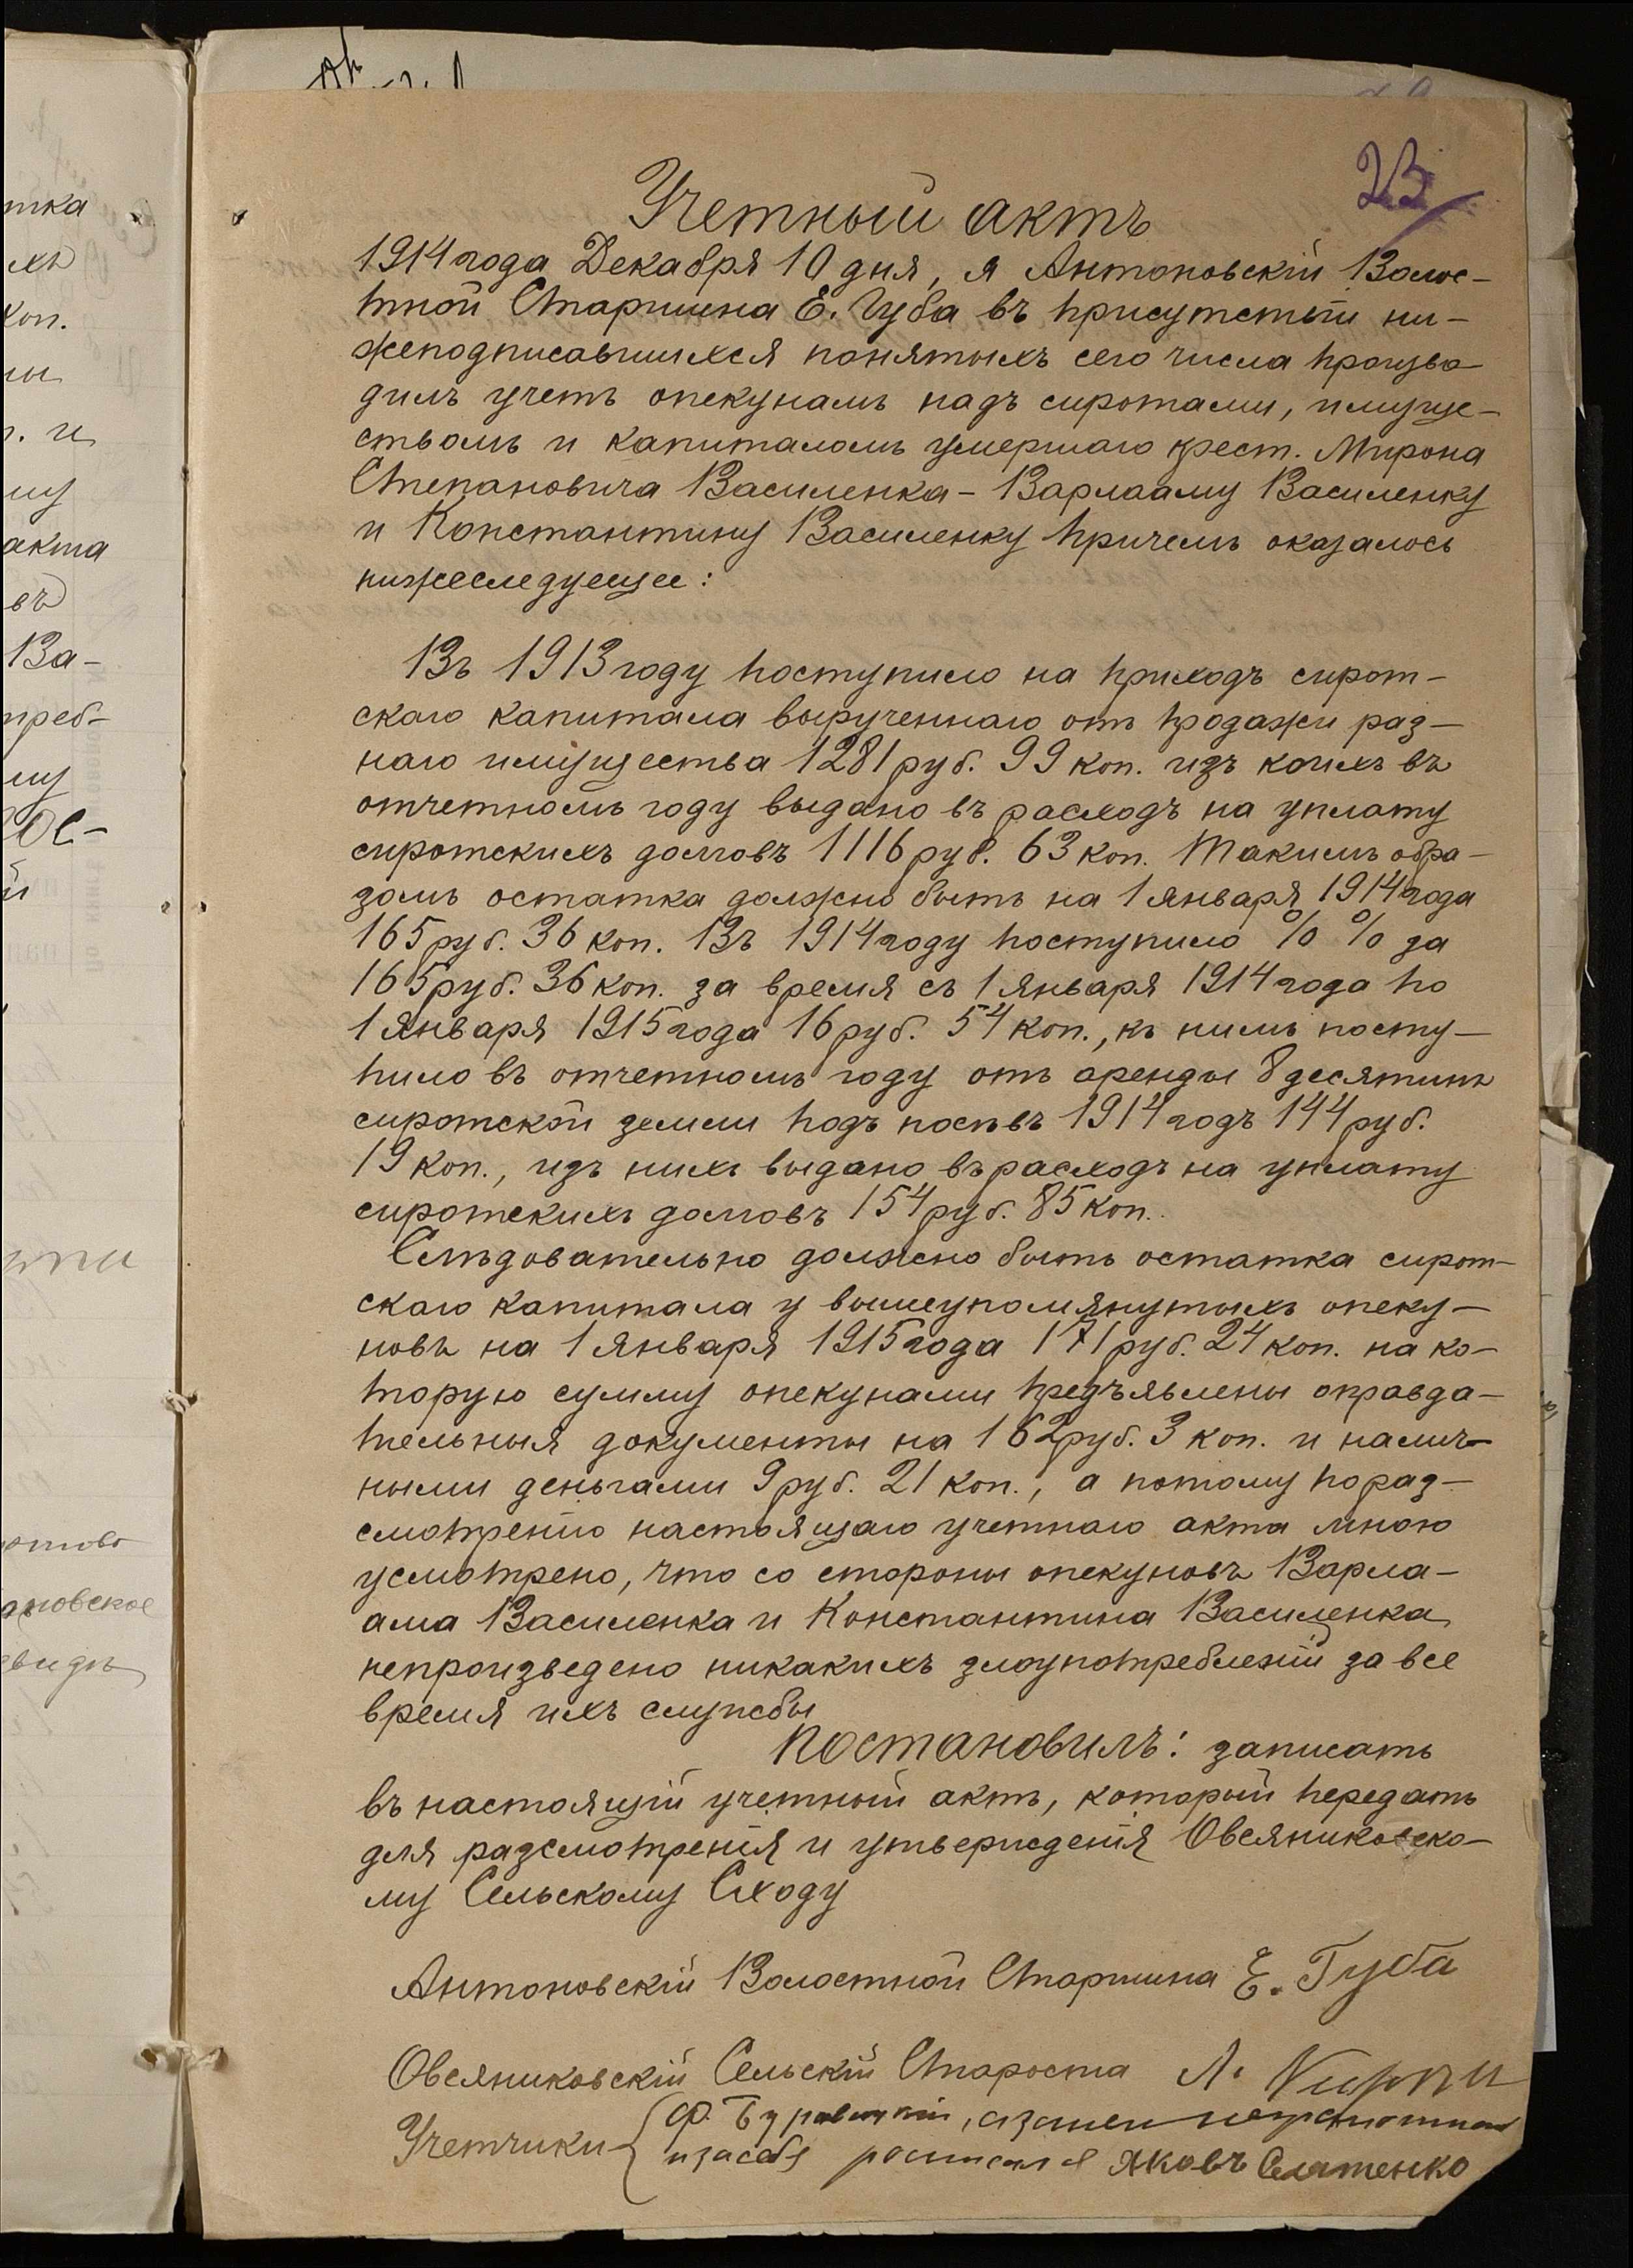 23
Учетный актъ
1914 года Декабря 10 дня, я Антоновскій Волос-
тной Старшина Е. Губа въ присутствіи ни-
жеподписавшихся понятыхъ сего числа произво-
дилъ учетъ опекунамъ надъ сиротами, имуще-
ствомъ и капиталомъ умершаго крест. Мирона
Степановича Василенка - Варлааму Василенку
и Константину Василенку причемъ оказалось
нижеследуещее:
Въ 1913 году поступило на приходъ сирот-
скаго капитала вырученнаго отъ продажи раз-
наго имущества 1281 руб. 99 коп. изъ коихъ въ
отчетномъ году выдано въ расходъ на уплату
сиротскихъ долговъ 1116 руб. 63 коп. Такимъ обра-
зомъ остатка должно быть на 1 января 1914 года
165 руб. 36 коп. Въ 1914 году поступило % % за
165 руб. 36 коп. за время съ 1 января 1914 года по
1 января 1915 года 16 руб. 54 коп., къ нимъ посту-
пило въ отчетномъ году отъ аренды 8 десятинъ
сиротской земли подъ посѣвъ 1914 годъ 144 руб.
19 коп., изъ нихъ выдано въ расходъ на уплату
сиротскихъ долговъ 154 руб. 85 коп.
Слѣдовательно должно быть остатка сирот-
скаго капитала у вышеупомянутыхъ опеку-
новъ на 1 января 1915 года 171 руб. 24 коп. на ко-
торую сумму опекунами предъявлены оправда-
тельныя документы на 162 руб. 3 коп. и налич-
ными деньгами 9 руб. 21 коп., а потому по раз-
смотренію настоящаго учетнаго акта мною
усмотрено, что со стороны опекуновъ Варла-
ама Василенка и Константина Василенка
непроизведено никакихъ злоупотребленій за все
время ихъ службы
Постановилъ: записать
въ настоящій учетный актъ, который передать
для разсмотренія и утвержденія Овсяниковско-
му Сельскому Сходу
Антоновскій Волостной Старшина Е. Губа
Овсяниковскій Сельскій Староста
Учетчики
и за себя росписался Яковъ